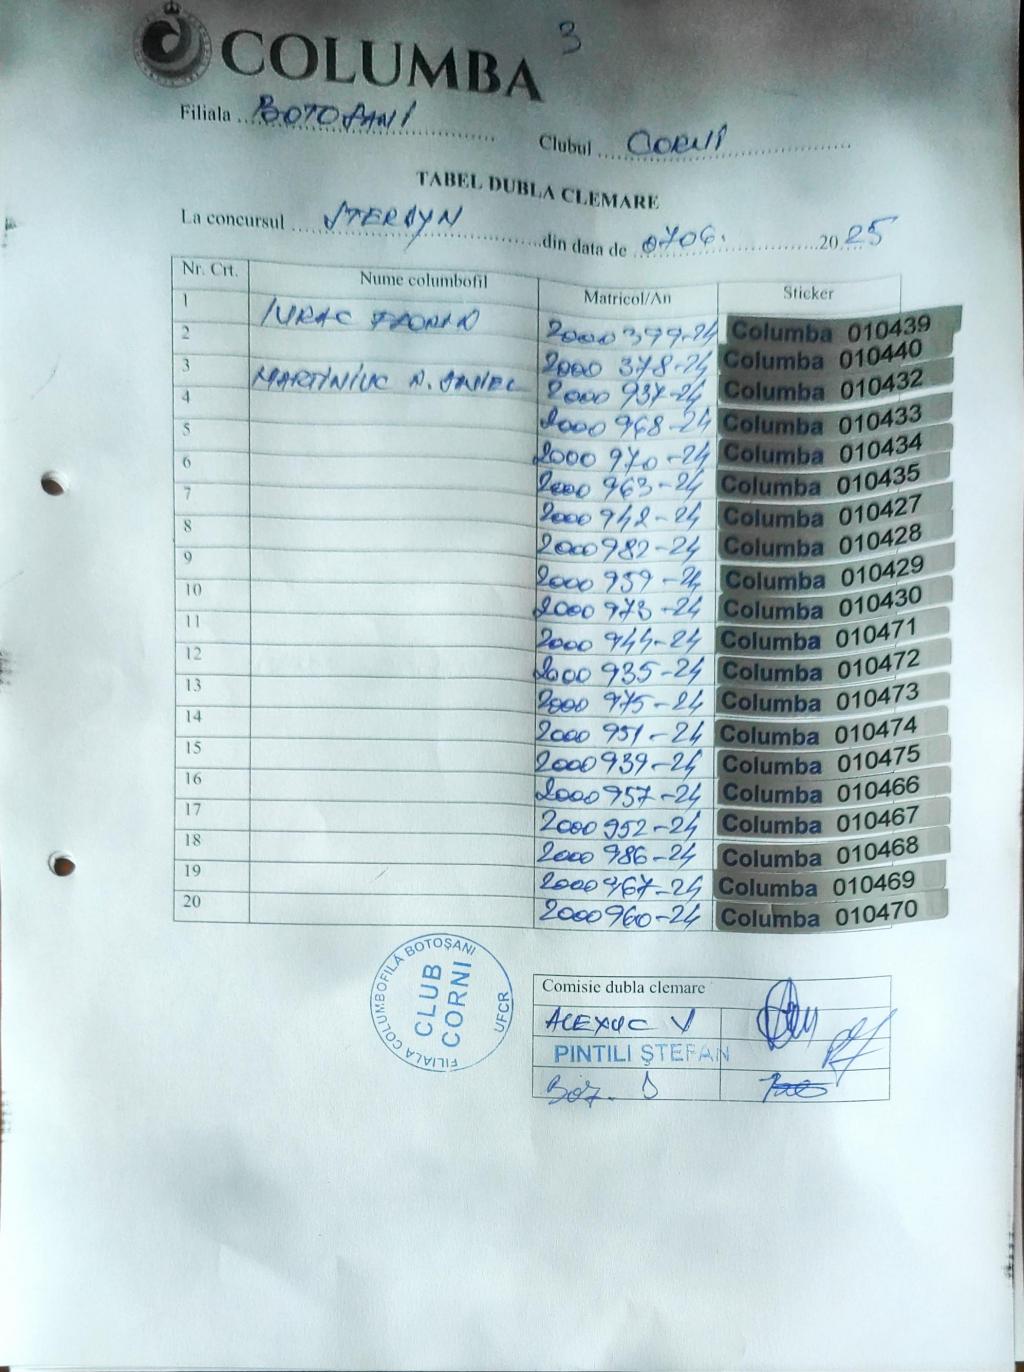 COLUMBA 3
Filiala BOTOȘANI Clubul CORNI
TABEL DUBLA CLEMARE
La concursul din data de 0706. 2025
Nr. Crt. Nume columbofil Matricol/An Sticker
1 IURAC 2000 399-24 Columba 010439
2 2000 378-24 Columba 010440
3 MARTINIUC A. DANIEL 2000 937-24 Columba 010432
4 2000 968-24 Columba 010433
5 2000 970-24 Columba 010434
6 2000 963-24 Columba 010435
7 2000 942-24 Columba 010427
8 2000 982-24 Columba 010428
9 2000 959-24 Columba 010429
10 2000 973-24 Columba 010430
11 2000 944-24 Columba 010471
12 2000 935-24 Columba 010472
13 2000 975-24 Columba 010473
14 2000 951-24 Columba 010474
15 2000 939-24 Columba 010475
16 2000 957-24 Columba 010466
17 2000 952-24 Columba 010467
18 2000 986-24 Columba 010468
19 2000 967-24 Columba 010469
20 2000 960-24 Columba 010470
FILIALA COLUMBOFILĂ BOTOȘANI
CLUB
CORNI
UFCR
Comisie dubla clemare
ALEXUC V
PINTILI ȘTEFAN